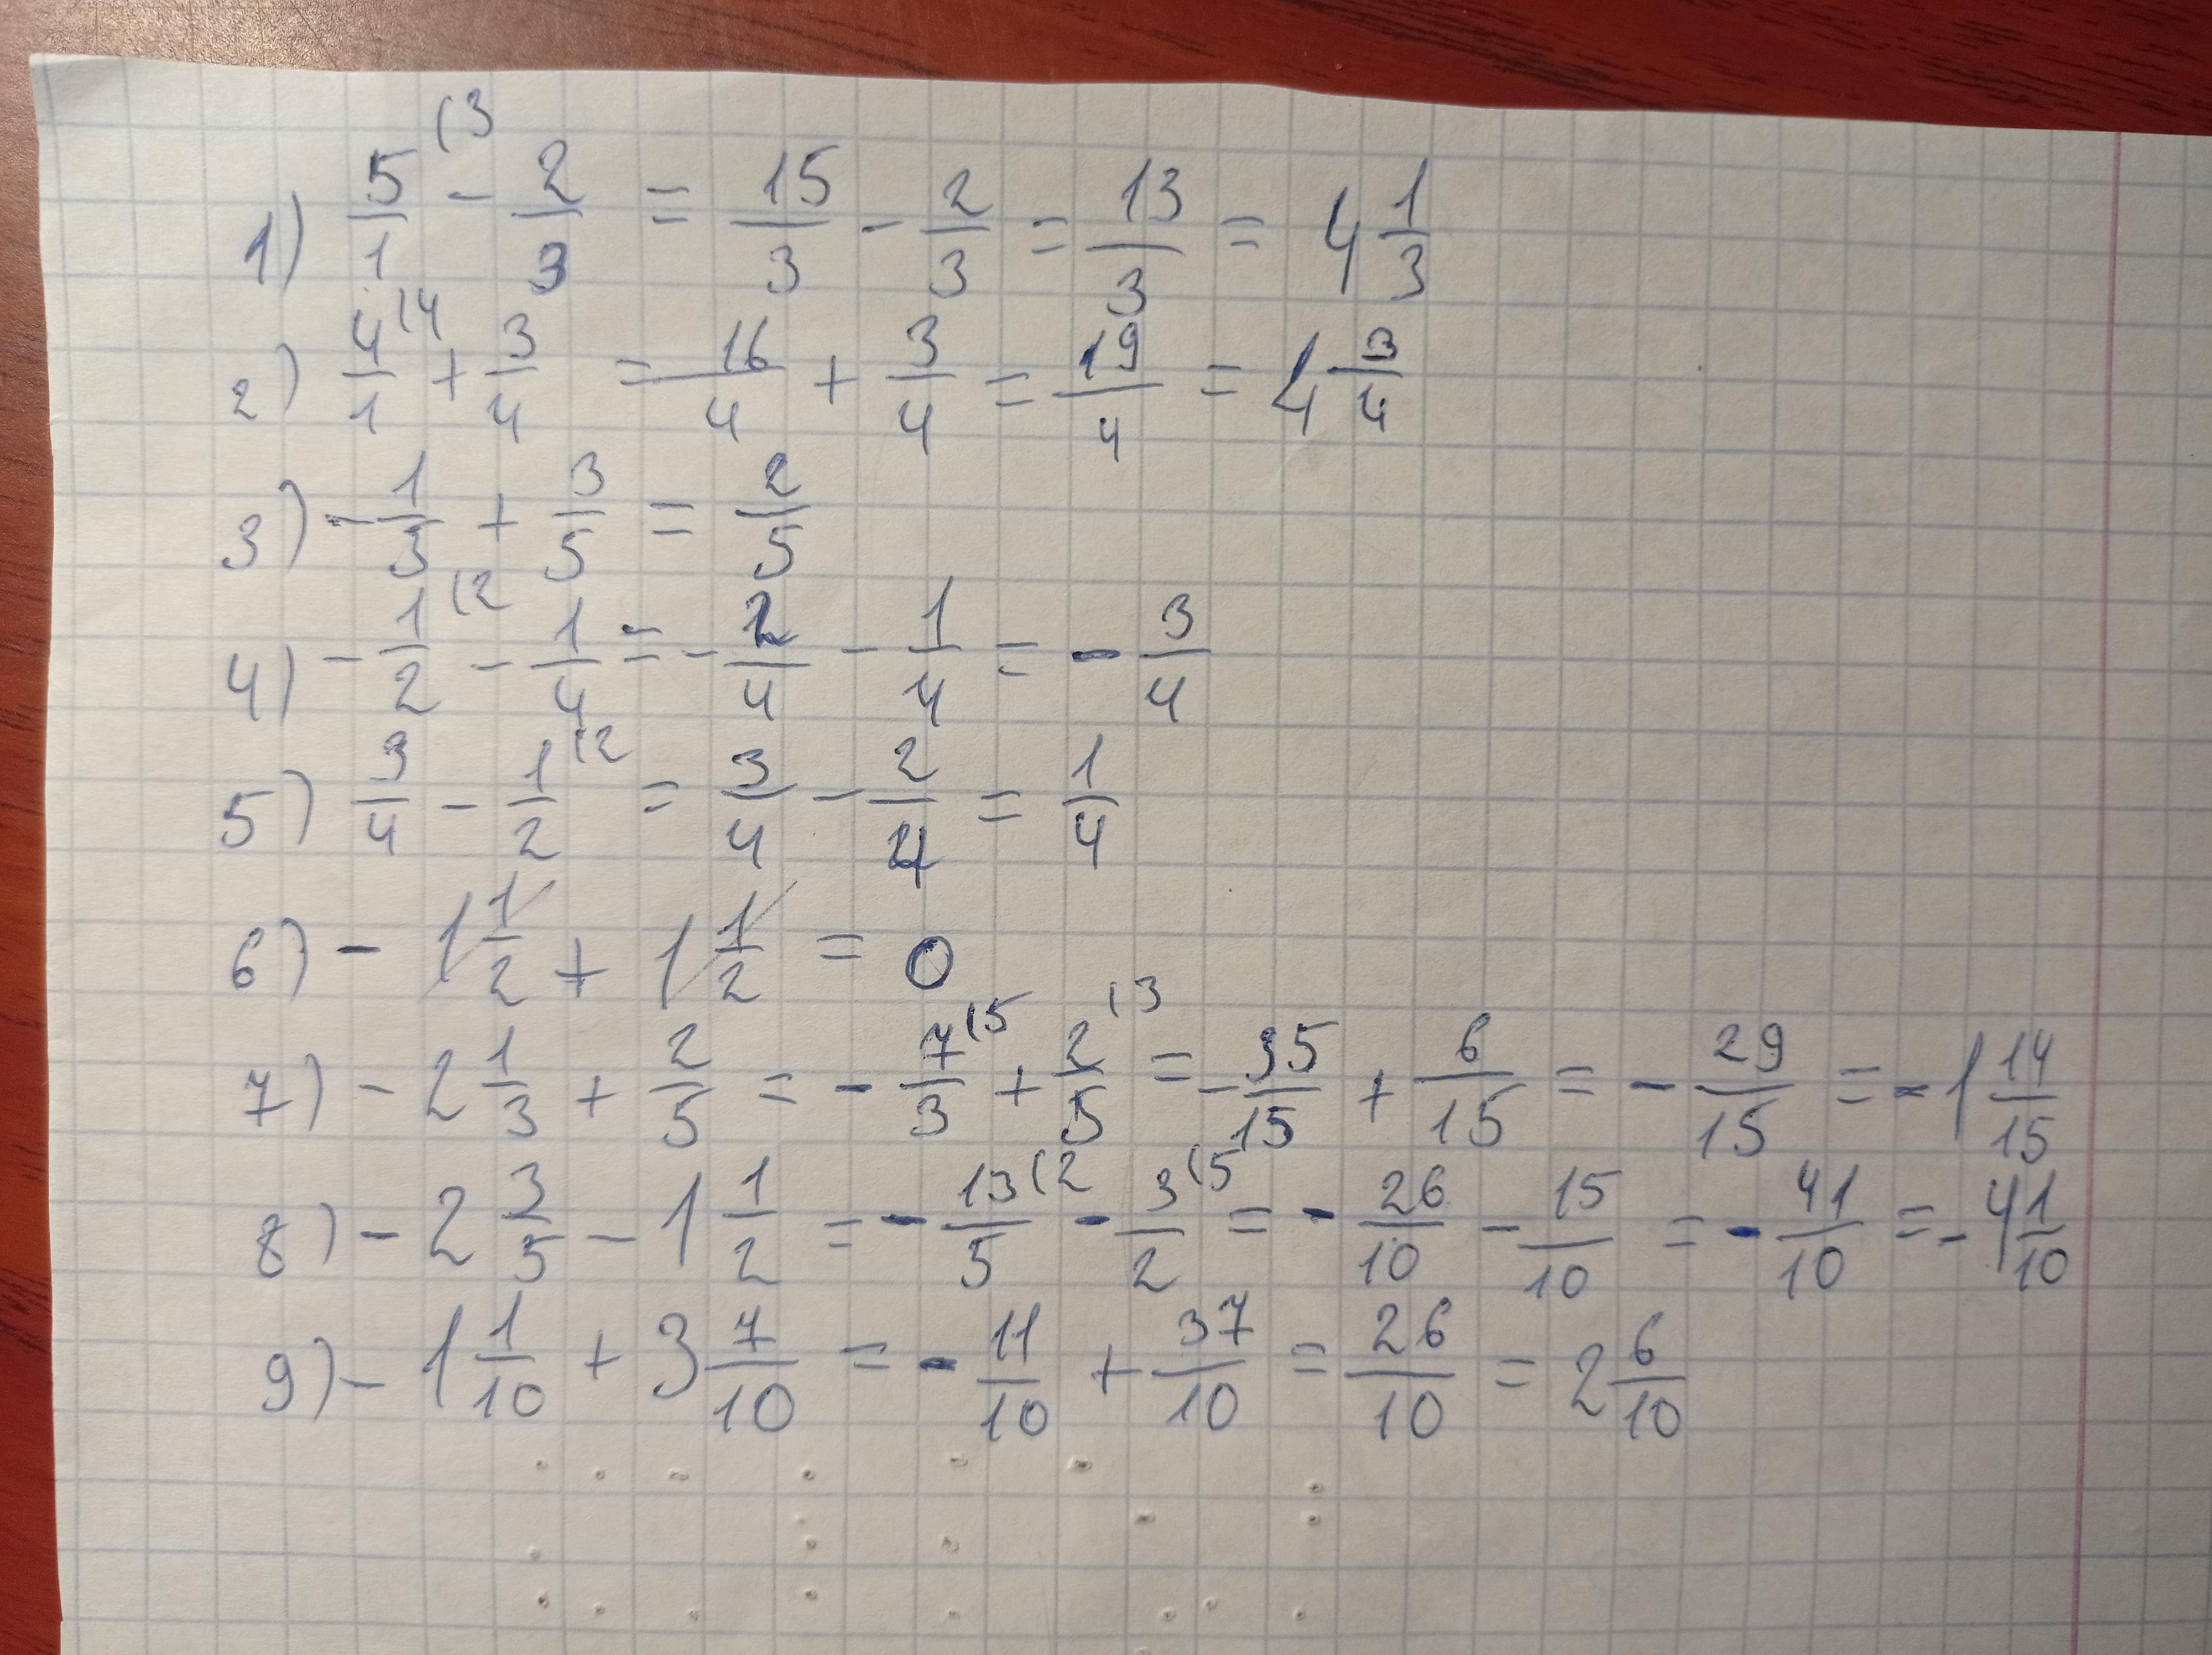 1) 5/1 (3 - 2/3 = 15/3 - 2/3 = 13/3 = 4 1/3
2) 4/1 (4 + 3/4 = 16/4 + 3/4 = 19/4 = 4 3/4
3) - 1/3 + 3/5 = 2/5
4) - 1/2 (2 - 1/4 = - 2/4 - 1/4 = - 3/4
5) 3/4 - 1/2 (2 = 3/4 - 2/4 = 1/4
6) - 1 1/2 + 1 1/2 = 0
7) - 2 1/3 + 2/5 = - 7/3 (5 + 2/5 (3 = - 35/15 + 6/15 = - 29/15 = - 1 14/15
8) - 2 3/5 - 1 1/2 = - 13/5 (2 - 3/2 (5 = - 26/10 - 15/10 = - 41/10 = - 4 1/10
9) - 1 1/10 + 3 7/10 = - 11/10 + 37/10 = 26/10 = 2 6/10